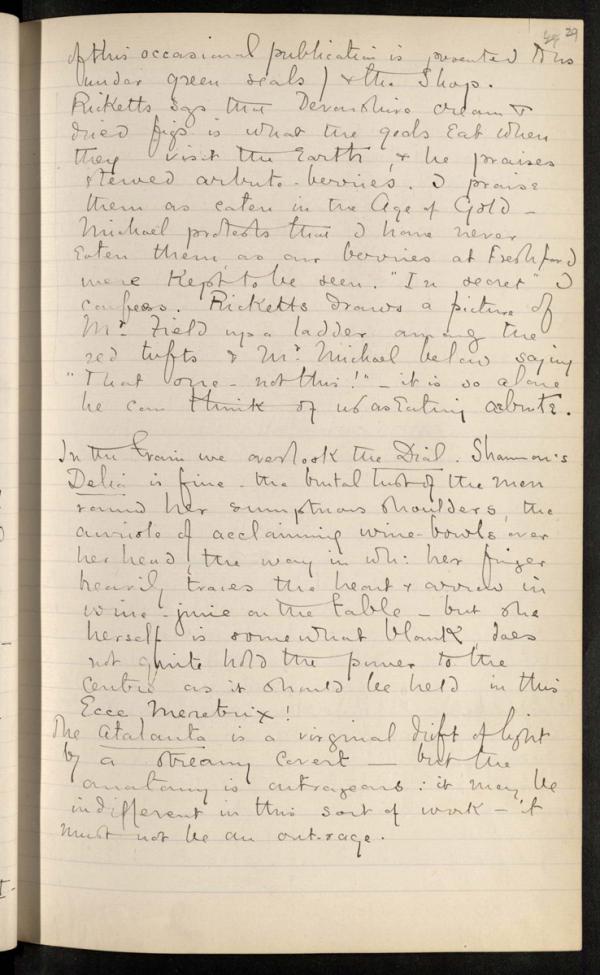 29
of this occasional publication is presented to us
under green seals) & the Shop.
Ricketts says that Devonshire cream &
dried figs is what the gods eat when
they visit the Earth, & he praises
stewed arbute-berries. I praise
them as eaten in the Age of Gold –
Michael protests that I have never
Eaten them as our berries at Freshford
were Kept to be seen. "In secret" I
confess. Ricketts draws a picture of
Mr. Field up a ladder among the
red tufts & Mr. Michael below saying
"That one – not this!" – it is so alone
he can think of us as Eating arbute.
In the train we overlook the Dial. Shannon's
Delia is fine – the brutal lust of the men
round her sumptuous shoulders, the
aureole of acclaiming wine-bowls over
her head, the way in wh: her finger
heavily traces the heart & arrow in
wine-juice on the table – but she
herself is somewhat blank, does
not quite hold the power to the
Centre as it should be held in this
Ecce Meretrix!
The Atalanta is a virginal drift of light
by a streamy covert – but the
anatomy is outrageous: it may be
indifferent in this sort of work – it
must not be an out-rage.